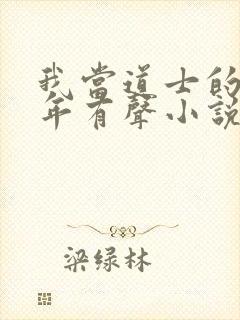 我當道士的
年有聲小說
梁绿林